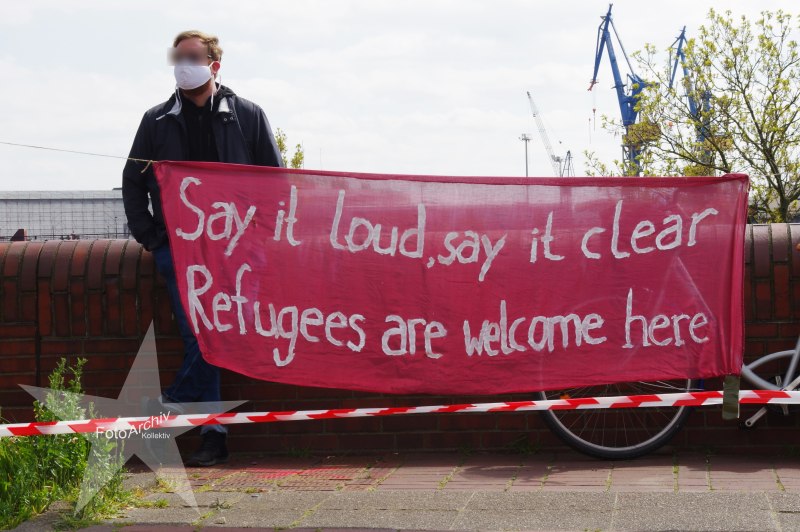 Say it loud, say it clear
Refugees are welcome here
FotoArchiv
Kollektiv